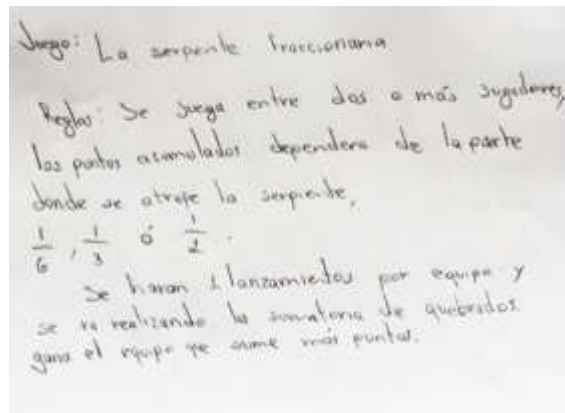 Juego: La serpiente fraccionaria
Reglas: Se juega entre dos o más jugadores,
los puntos acumulados dependera de la parte
donde se atrape la serpiente,
1/6, 1/3 ó 1/2.
Se haran 2 lanzamientos por equipo y
se va realizando la sumatoria de quebrados.
gana el equipo que sume más puntos.